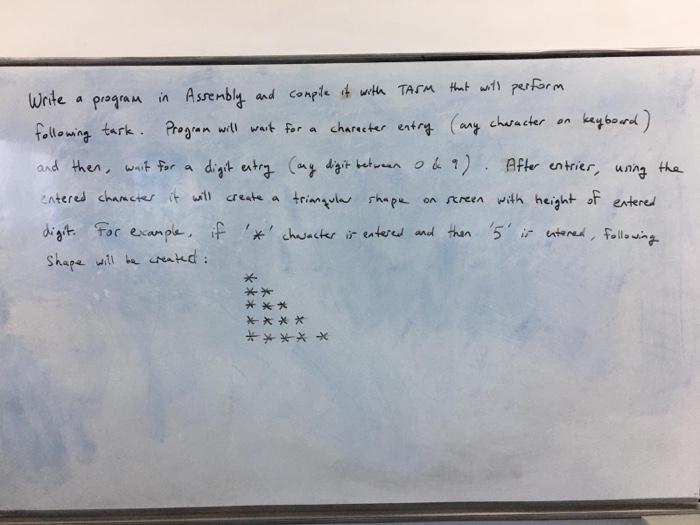 Write a program in Assembly and compile it with TASM that will perform
following task. Program will wait for a character entry (any character on keyboard)
and then, wait for a digit entry (any digit between 0 & 9). After entries, using the
entered character it will create a triangular shape on screen with height of entered
digit. For example, if '*' character is entered and then '5' is entered, following
shape will be created:
*
**
***
****
*****